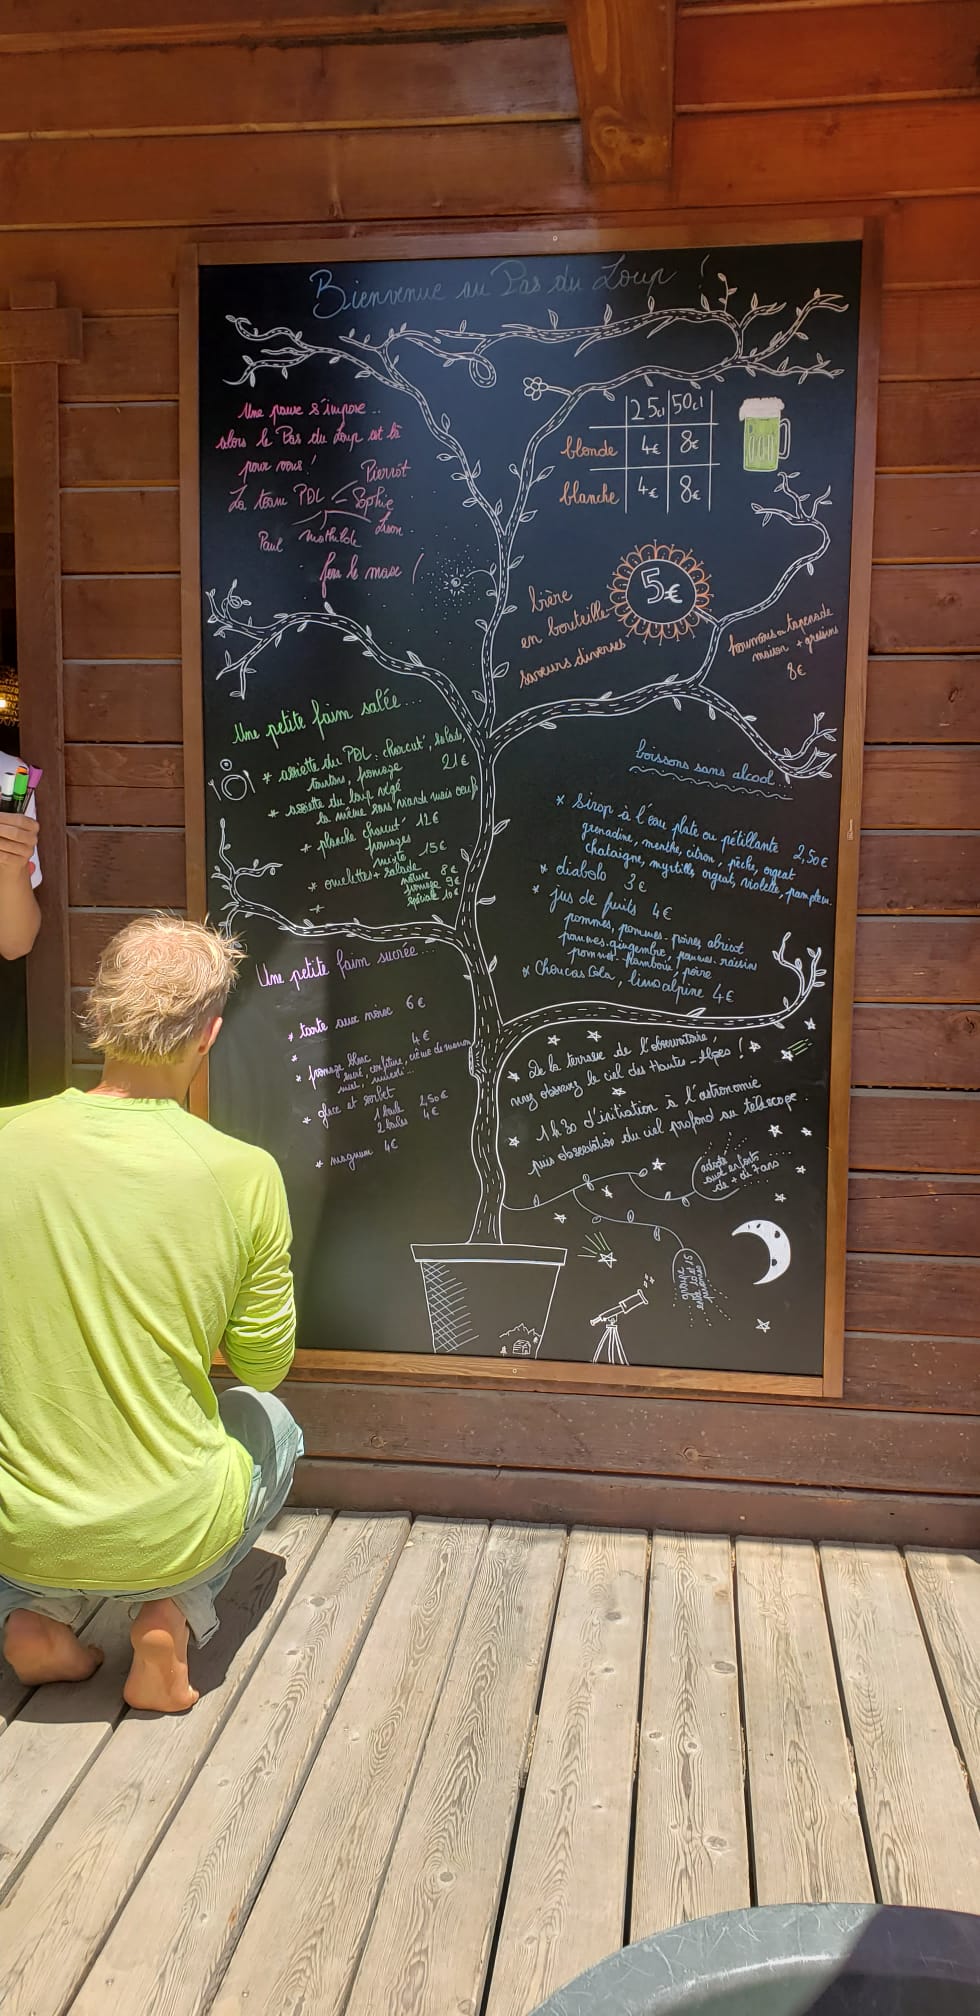 Bienvenue au Pas du Loup !
Une pause s'impose...
alors le Pas du Loup est là
pour vous !
Pierrot
La team PDL
Sophie
Lison
Paul
Mathilde
fera le max !
25cl 50cl
blonde 4€ 8€
blanche 4€ 8€
bière
en bouteille
saveurs diverses
5€
houmous ou tapenade
maison + gressins
8€
Une petite faim salée...
* assiette du PDL : charcut', salade,
tourtons, fromage 21€
* assiette du loup végé
la même sans viande mais oeuf
* planche charcut' 12€
fromages
mixte 15€
* omelettes + salade
nature 8€
fromage 9€
spéciale 10€
*
boissons sans alcool
* Sirop à l'eau plate ou pétillante 2,50€
grenadine, menthe, citron, pêche, orgeat
chataigne, myrtille, orgeat, violette, pamplem.
* diabolo 3€
* jus de fruits 4€
pommes, pommes-poires, abricot
pommes-gingembre, pommes-raisins
pommes-framboise, poire
* Choucas Cola, limo alpine 4€
Une petite faim sucrée...
* tarte aux noix 6€
*
* fromage blanc 4€
sucré, confiture, crème de marron
miel,
* glace et sorbet
1 boule 2,50€
2 boules 4€
* magnum 4€
De la terrasse de l'observatoire,
venez observer le ciel des Hautes-Alpes !
1h30 d'initiation à l'astronomie
puis observation du ciel profond au télescope.
adapté
aux enfants
de + de 7 ans
groupe
entre 10 et 15
personnes